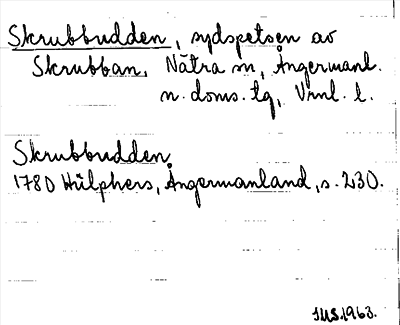 Skrubbudden, sydspetsen av
Skrubban, Nätra sn, Ångermanl.
n. doms. lg, Vrnl. l.
Skrubbudden.
1780 Hülphers, Ångermanland, s. 230.
JUS.1963.